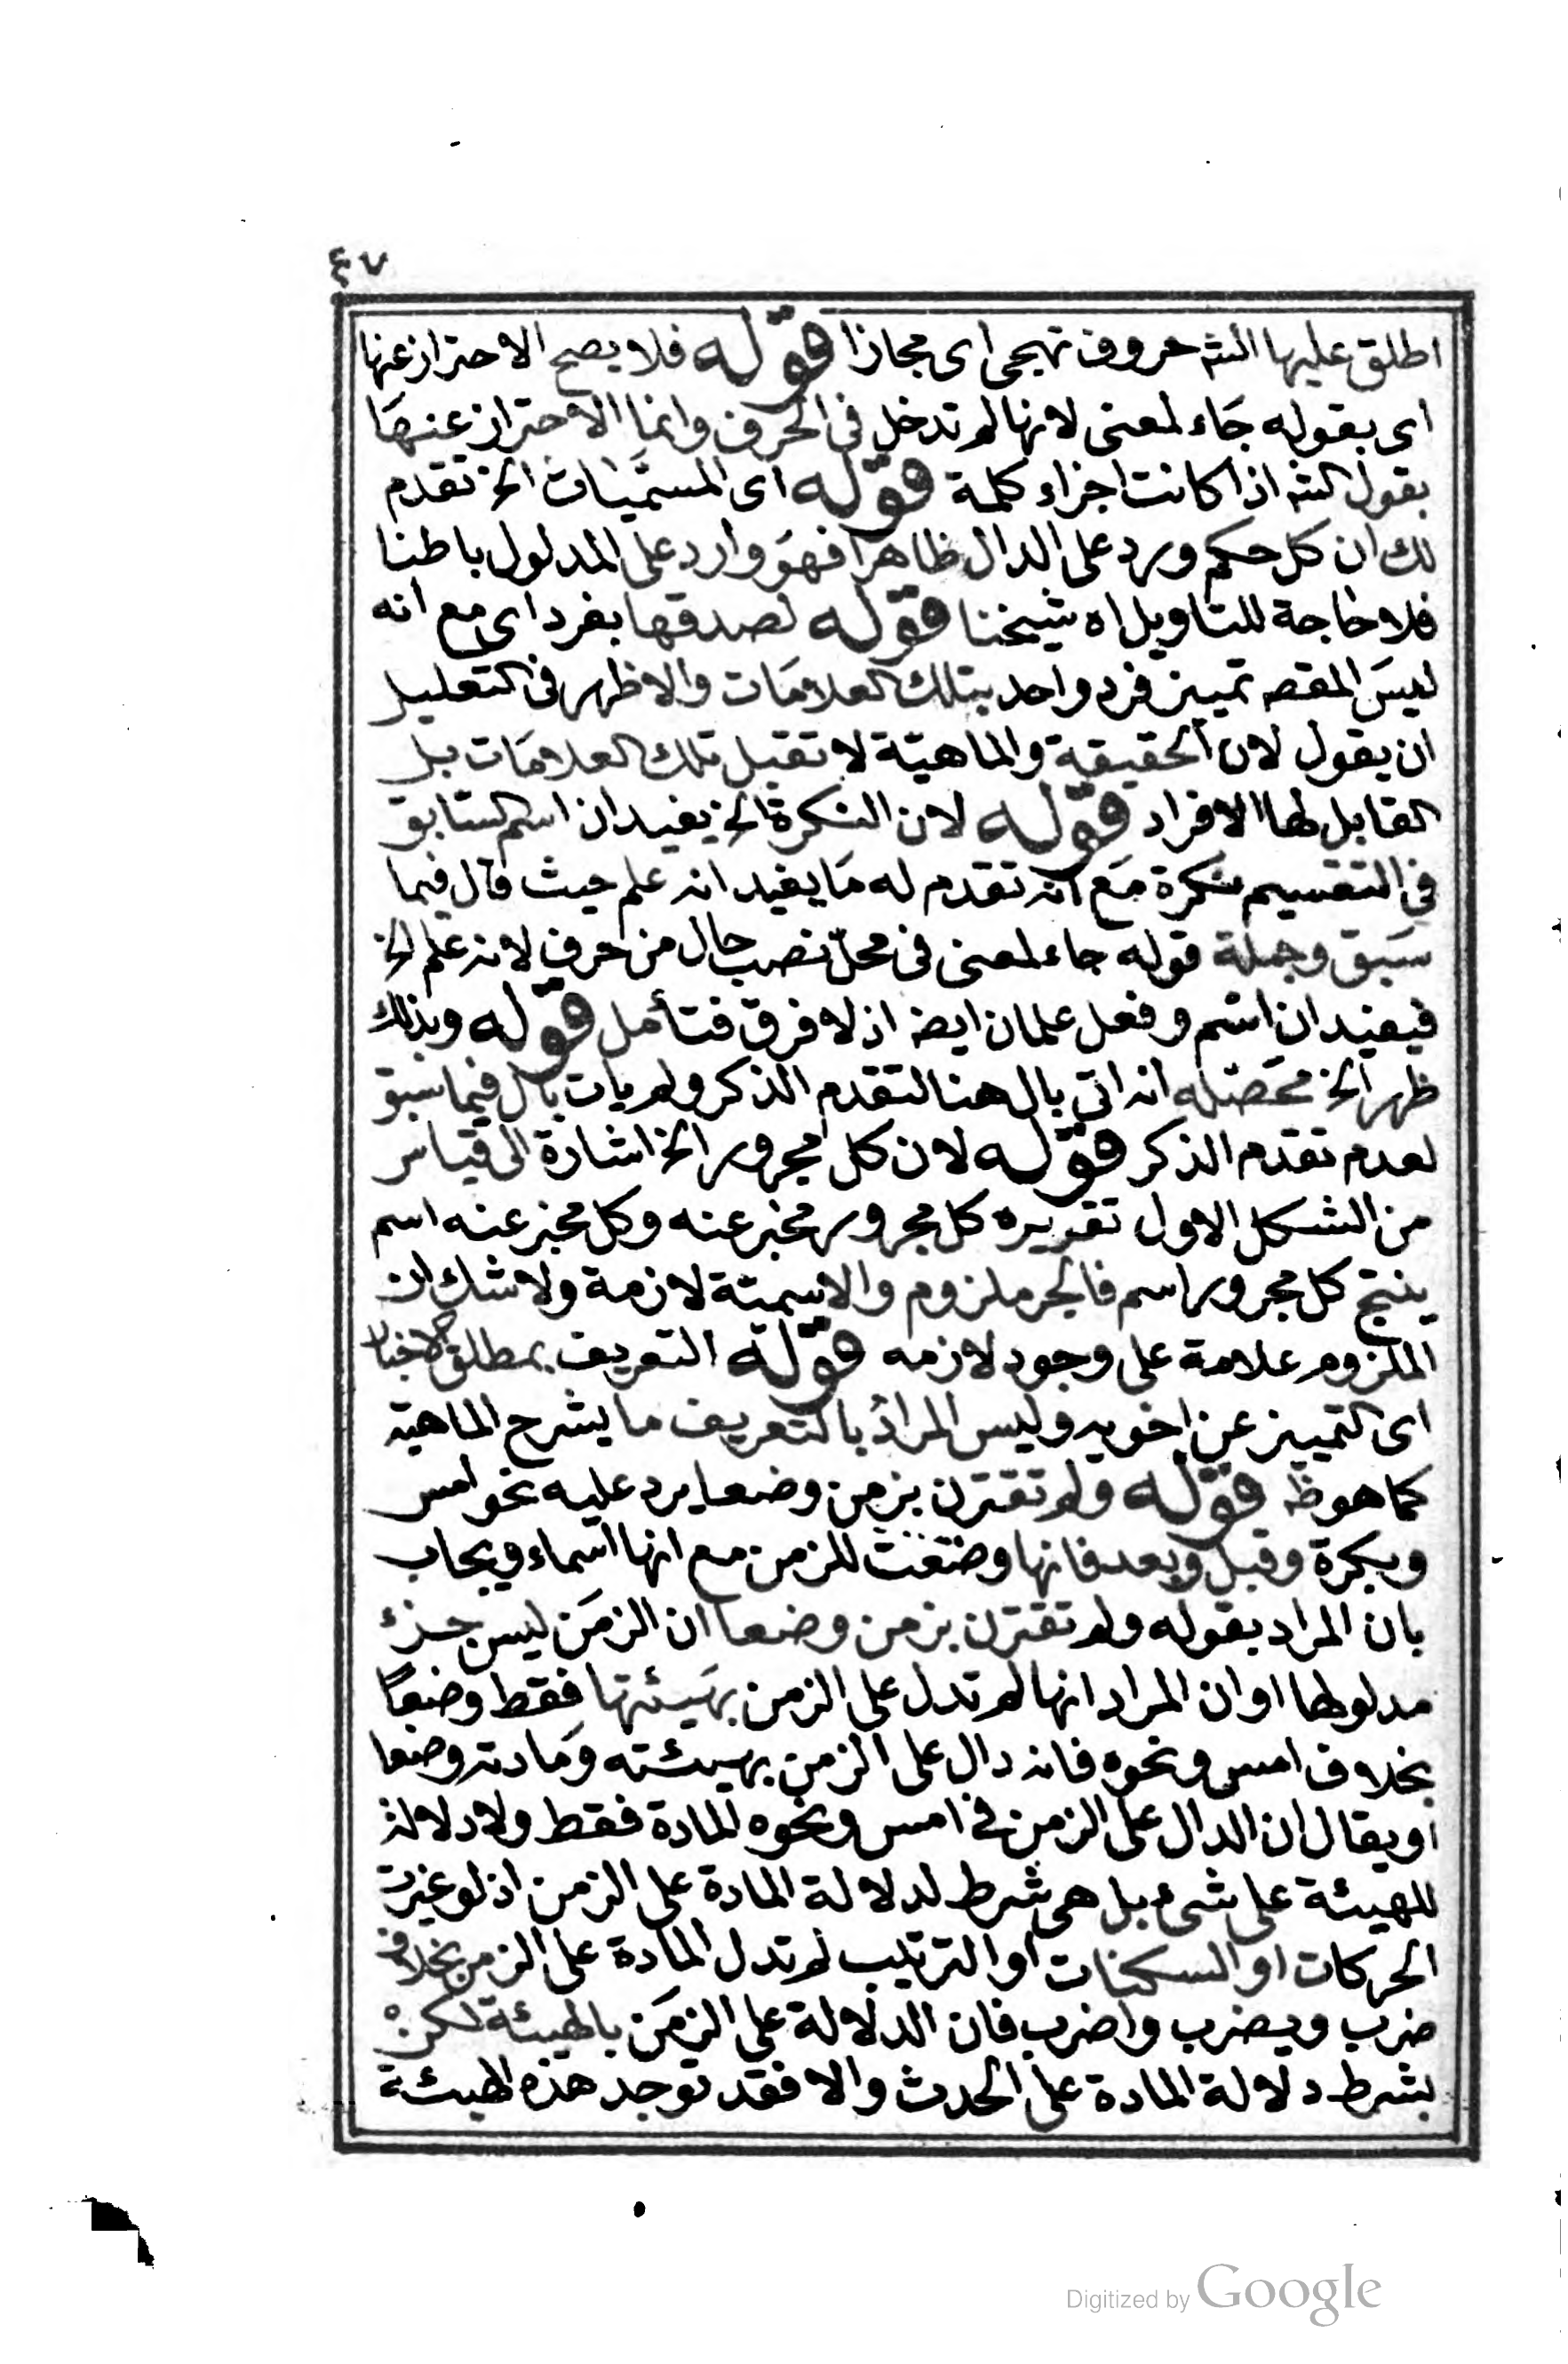 ٤٧
اطلق عليها الشه حروف تهجى اى مجازا قوله فلا يصح الاحتراز عنها
اى بقوله جاء لمعنى لانها لم تدخل فى الحرف وانما الاحتراز عنها
بقول الشه اذا كانت اجزاء كلمة قوله اى المسميات الخ تقدم
لك ان كل حكم ورد على الدال ظاهرا فهو وارد على المدلول باطنا
فلا حاجة للتاويل اه شيخنا قوله لصدقها بفرد اى مع انه
ليس المقصه تمييز فرد واحد بتلك العلامات والاظهر فى التعليل
ان يقول لان الحقيقة والماهية لا تقبل تلك العلامات بل
القابل لها الافراد قوله لان النكرة الخ يفيد ان اسم السابق
فى التقسيم نكرة مع انه تقدم له ما يفيد انه علم حيث قال فيما
سبق وجملة قوله جاء لمعنى فى محل نصب حال من حرف لانه علم الخ
فيفيد ان اسم وفعل علمان ايضه اذ لا فرق فتأمل قوله وبذلك
ظهر الخ محصله انه اتى بال هنا لتقدم الذكر ولم يات بال فيما سبق
لعدم تقدم الذكر قوله لان كل مجرور الخ اشارة الى قياس
من الشكل الاول تقريره كل مجرور مخبر عنه وكل مخبر عنه اسم
ينتج كل مجرور اسم فالجر ملزوم والاسمية لازمة ولا شك ان
الملزوم علامة على وجود لازمه قوله التعريف بمطلق الاخبار
اى التمييز عن اخويه وليس المراد بالتعريف ما يشرح الماهية
كما هو ظه قوله ولم تقترن بزمن وضعا يرد عليه نحو امس
وبكرة وقبل وبعد فانها وضعت للزمن مع انها اسماء ويجاب
بان المراد بقوله ولم تقترن بزمن وضعا ان الزمن ليس جزء
مدلولها او ان المراد انها لم تدل على الزمن بهيئتها فقط وضعا
بخلاف امس ونحوه فانه دال على الزمن بهيئته ومادته وضعا
او يقال ان الدال على الزمن فى امس ونحوه المادة فقط ولا دلالة
للهيئة على شىء بل هى شرط لدلالة المادة على الزمن اذ لو غيرت
الحركات او السكنات او الترتيب لم تدل المادة على الزمن بخلاف
ضرب ويضرب واضرب فان الدلالة على الزمن بالهيئة لكن
بشرط دلالة المادة على الحدث والا فقد توجد هذه الهيئة
Digitized by Google